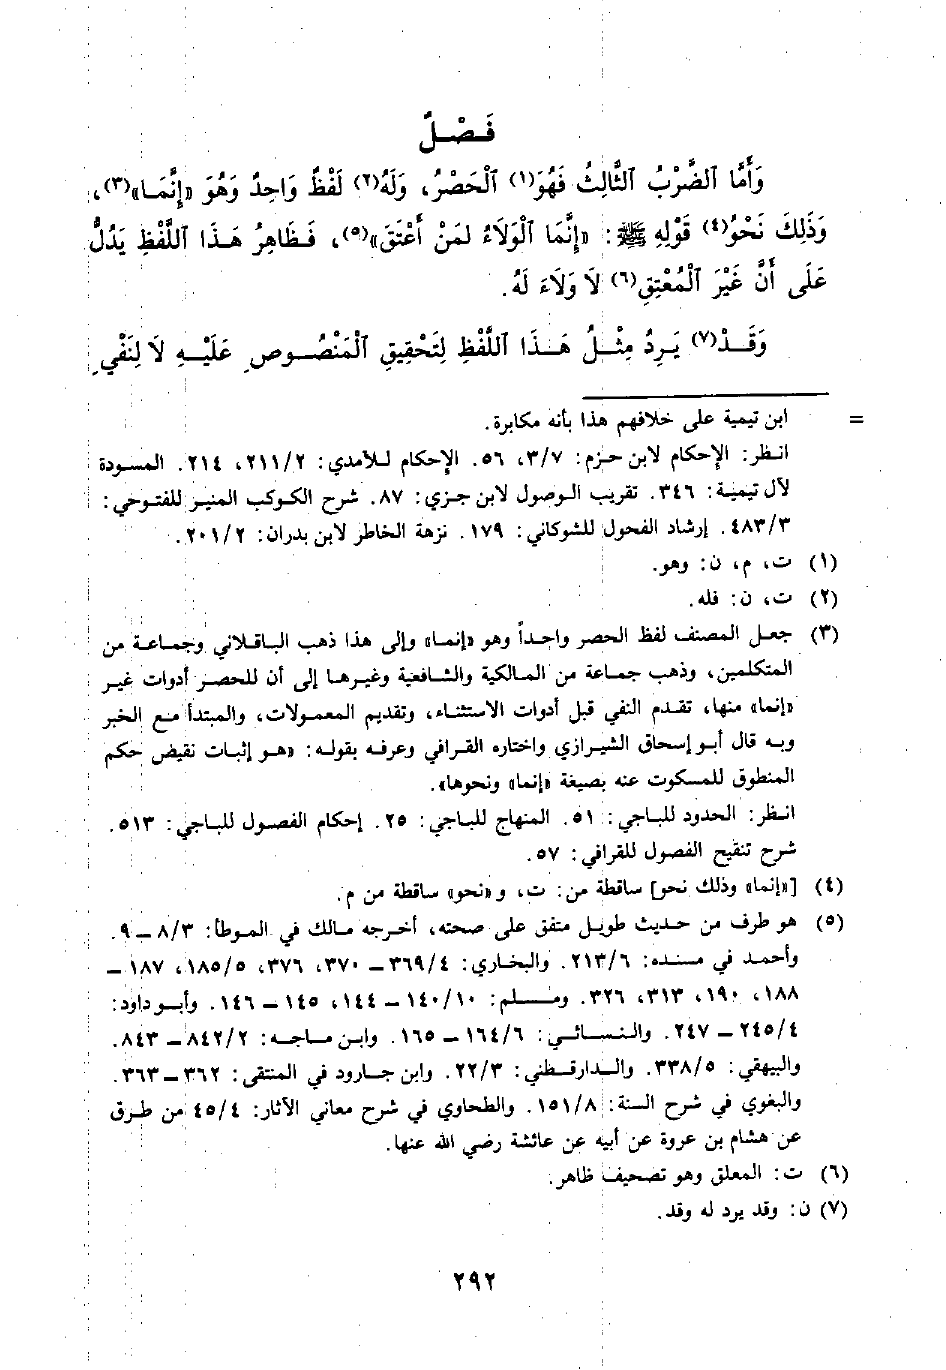 فَصْلٌ
وَأَمَّا ٱلضَّرْبُ ٱلثَّالِثُ فَهُوَ(١) ٱلْحَصْرُ، وَلَهُ(٢) لَفْظٌ وَاحِدٌ وَهُوَ «إِنَّمَا»(٣)،
وَذَلِكَ نَحْوُ(٤) قَوْلِهِ ﷺ: «إِنَّمَا ٱلْوَلَاءُ لمَنْ أَعْتَقَ»(٥)، فَظَاهِرُ هَذَا ٱللَّفْظِ يَدُلُّ
عَلَى أَنَّ غَيْرَ ٱلْمُعْتِقِ(٦) لَا وَلَاءَ لَهُ.
وَقَدْ(٧) يَرِدُ مِثْلُ هَذَا ٱللَّفْظِ لِتَحْقِيقِ ٱلْمَنْصُوصِ عَلَيْهِ لَا لِنَفْيِ
= ابن تيمية على خلافهم هذا بأنه مكابرة.
انظر: الإحكام لابن حزم: ٣/٧، ٥٦. الإحكام للآمدي: ٢١١/٢، ٢١٤. المسودة
لآل تيمية: ٣٤٦. تقريب الوصول لابن جزي: ٨٧. شرح الكوكب المنير للفتوحي:
٤٨٣/٣. إرشاد الفحول للشوكاني: ١٧٩. نزهة الخاطر لابن بدران: ٢٠١/٢.
(١) ت، م، ن: وهو.
(٢) ت، ن: فله.
(٣) جعل المصنف لفظ الحصر واحداً وهو «إنما» وإلى هذا ذهب الباقلاني وجماعة من
المتكلمين، وذهب جماعة من المالكية والشافعية وغيرها إلى أن للحصر أدوات غير
«إنما» منها، تقدم النفي قبل أدوات الاستثناء، وتقديم المعمولات، والمبتدأ مع الخبر
وبه قال أبو إسحاق الشيرازي واختاره القرافي وعرفه بقوله: «هو إثبات نقيض حكم
المنطوق للمسكوت عنه بصيغة «إنما» ونحوها».
انظر: الحدود للباجي: ٥١. المنهاج للباجي: ٢٥. إحكام الفصول للباجي: ٥١٣.
شرح تنقيح الفصول للقرافي: ٥٧.
(٤) [«إنما» وذلك نحو] ساقطة من: ت، و«نحو» ساقطة من م.
(٥) هو طرف من حديث طويل متفق على صحته، أخرجه مالك في الموطأ: ٨/٣ ــ ٩.
وأحمد في مسنده: ٢١٣/٦. والبخاري: ٣٦٩/٤ ــ ٣٧٠، ٣٧٦، ١٨٥/٥، ١٨٧ ــ
١٨٨، ١٩٠، ٣١٣، ٣٢٦. ومسلم: ١٤٠/١٠ ــ ١٤٤، ١٤٥ ــ ١٤٦. وأبو داود:
٢٤٥/٤ ــ ٢٤٧. والنسائي: ١٦٤/٦ ــ ١٦٥. وابن ماجه: ٨٤٢/٢ ــ ٨٤٣.
والبيهقي: ٣٣٨/٥. والدارقطني: ٢٢/٣. وابن جارود في المنتقى: ٣٦٢ ــ ٣٦٣.
والبغوي في شرح السنة: ١٥١/٨. والطحاوي في شرح معاني الآثار: ٤٥/٤ من طرق
عن هشام بن عروة عن أبيه عن عائشة رضي الله عنها.
(٦) ت: المعلق وهو تصحيف ظاهر.
(٧) ن: وقد يرد له وقد.
٢٩٢